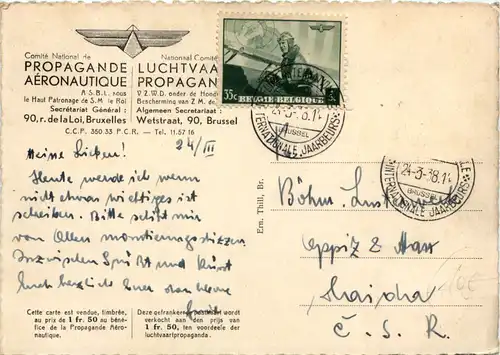 Comité National de
PROPAGANDE
AÉRONAUTIQUE
A.S.B.L. sous
le Haut Patronage de S.M. le Roi
Secrétariat Général :
90, r. de la Loi, Bruxelles
Nationaal Comité
LUCHTVAA
PROPAGAN
V.Z.W.D. onder de Hoofde
Bescherming van Z.M. de
Algemeen Secretariaat :
Wetstraat, 90, Brussel
C.C.P. 350.33 P.C.R. — Tel. 11.57.16
35c BELGIE-BELGIQUE
24-3-38
BRUSSEL
INTERNATIONALE JAARBEURS
24-3-38
BRUSSEL
INTERNATIONALE JAARBEURS
24/III
Meine Lieben!
Heute werde ich wenn
nicht etwas wichtiges ist
schreiben. Bitte schickt mir
von Allen montierungsskizzen
Inzwischen Grüßt und Küsst
Euch herzlichst Euer
Ern. Thill, Br.
Böhm.
Oppitz & Haas
Haida
Č. S. R.
10€
Cette carte est vendue, timbrée,
au prix de 1 fr. 50 au béné-
fice de la Propagande Aéro-
nautique.
Deze gefrankeerde postkaart wordt
verkocht aan den prijs van
1 fr. 50, ten voordeele der
luchtvaartpropaganda.